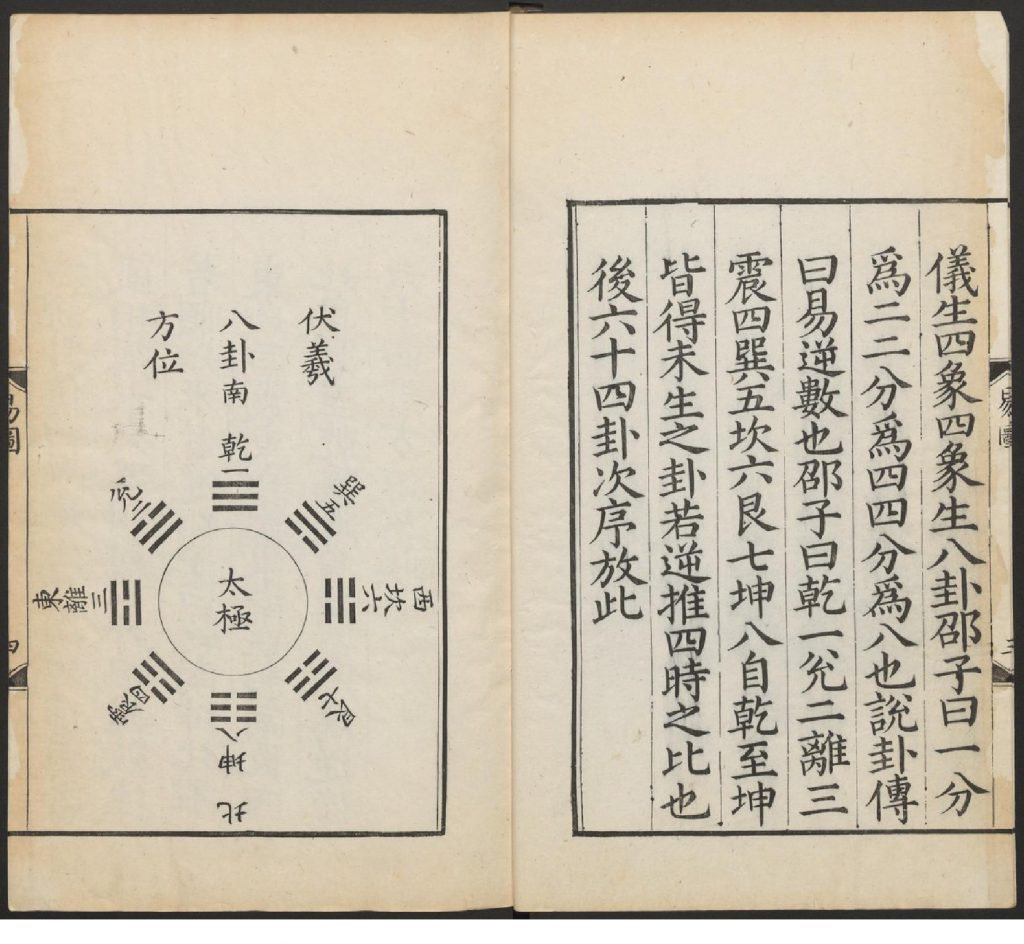 儀生四象四象生八卦邵子曰一分
爲二二分爲四四分爲八也說卦傳
曰易逆數也邵子曰乾一兊二離三
震四巽五坎六艮七坤八自乾至坤
皆得未生之卦若逆推四時之比也
後六十四卦次序放此
三
伏羲
八卦
方位
南
乾一
兊二
離三
東
震四
巽五
坎六
西
艮七
坤八
北
太極
易圖
四